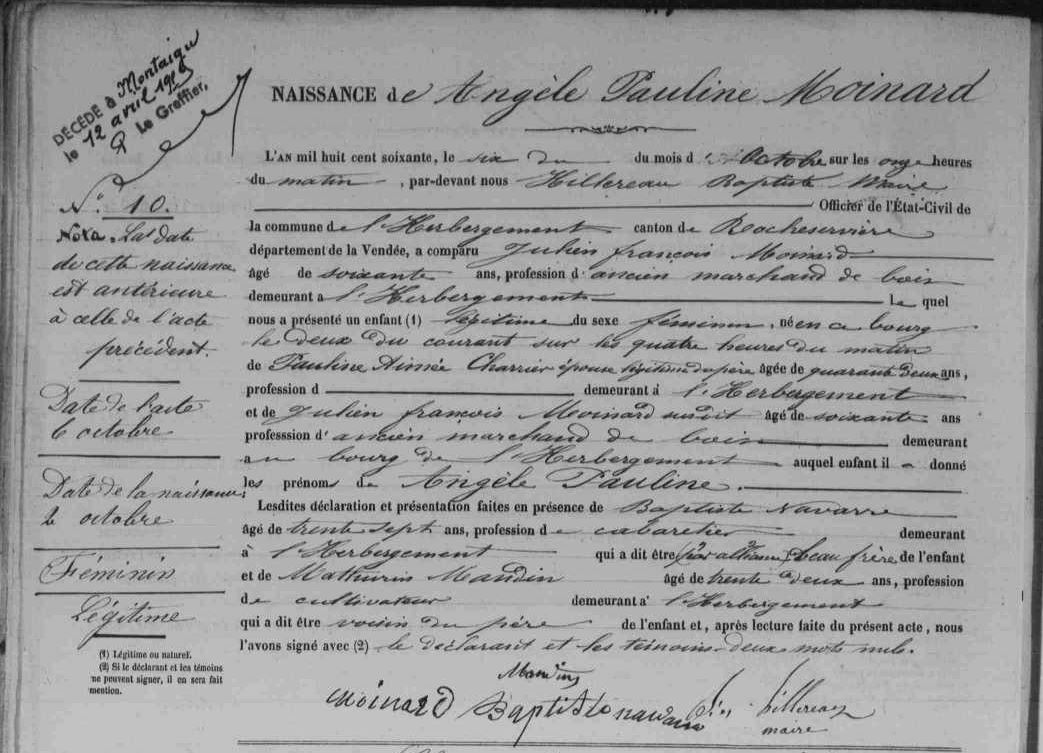 DÉCÉDÉ à Montaigu
le 12 avril
Le Greffier,
N° 10.
Nota. La date
de cette naissance
est antérieure
à celle de l'acte
précédent.
Date de l'acte
6 octobre
Date de la naissance
2 octobre
Féminin
Légitime
(1) Légitime ou naturel.
(2) Si le déclarant et les témoins
ne peuvent signer, il en sera fait
mention.
NAISSANCE de Angèle Pauline Moinard
L'AN mil huit cent soixante, le six du du mois d'octobre sur les onze heures
du matin, par-devant nous Hillereau Baptiste Maire
Officier de l'État-Civil de
la commune de l'Herbergement canton de Rocheservière
département de la Vendée, a comparu Julien françois Moinard
âgé de soixante ans, profession d'ancien marchand de bois
demeurant à l'Herbergement Lequel
nous a présenté un enfant (1) légitime du sexe féminin, né en ce bourg
le deux du courant sur les quatre heures du matin
de Pauline Aimée Charrier épouse légitime du père âgée de quarante deux ans,
profession d demeurant à l'Herbergement
et de Julien françois Moinard susdit âgé de soixante ans
professsion d'ancien marchand de bois demeurant
au bourg de l'Herbergement auquel enfant il a donné
les prénoms de Angèle Pauline.
Lesdites déclaration et présentation faites en présence de Baptiste Navarre
âgé de trente sept ans, profession de cabaretier demeurant
à l'Herbergement qui a dit être (par alliance) beau frère de l'enfant
et de Mathurin Mandin âgé de trente deux ans, profession
de cultivateur demeurant à l'Herbergement
qui a dit être voisin du père de l'enfant et, après lecture faite du présent acte, nous
l'avons signé avec (2) le déclarant et les témoins. deux mots nuls.
Mandin
Moinard Baptiste navarre Hillereau
maire